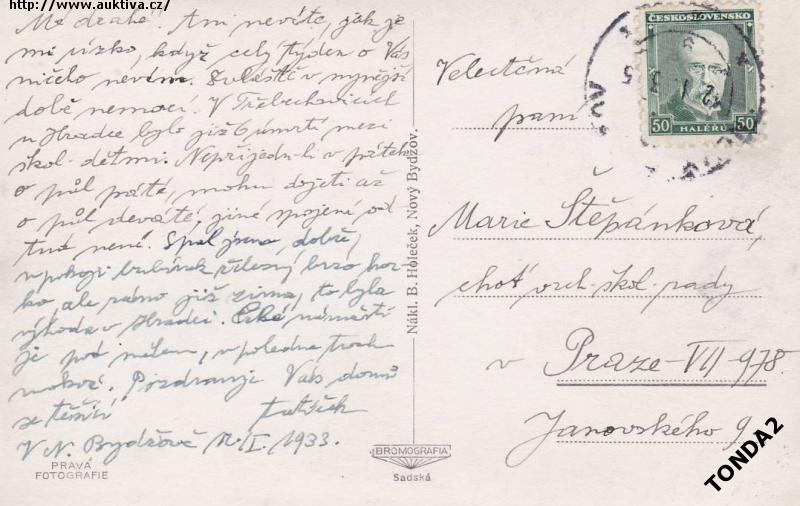 http://www.auktiva.cz/
Mé drahé! Ani nevíte, jak je
mi úzko, když celý týden o Vás
ničeho nevím. Zvláště v nynější
době nemocí. V Třebechovicích
u Hradce bylo již 6 úmrtí mezi
škol. dětmi. Nepřijedu-li v pátek
o půl páté, mohu dojeti až
o půl deváté, jiné spojení od
tud není. Spal jsem dobře,
v pokoji bubínek železný brzo hor-
ko, ale ráno již zima, to byla
výhoda v Hradci. Celé náměstí
je pod ledem, v poledne troch
mokré. Pozdravuje Vás domů
se těšící tatíček
V N. Bydžově 12./I. 1933.
PRAVÁ
FOTOGRAFIE
Nákl. B. Holeček, Nový Bydžov.
BROMOGRAFIA
Sadská
ČESKOSLOVENSKO
50 HALÉŘŮ 50
Velectěná
paní
Marie Štěpánková,
choť vrch. škol. rady
v Praze-VII-978.
Janovského 9
TONDA2